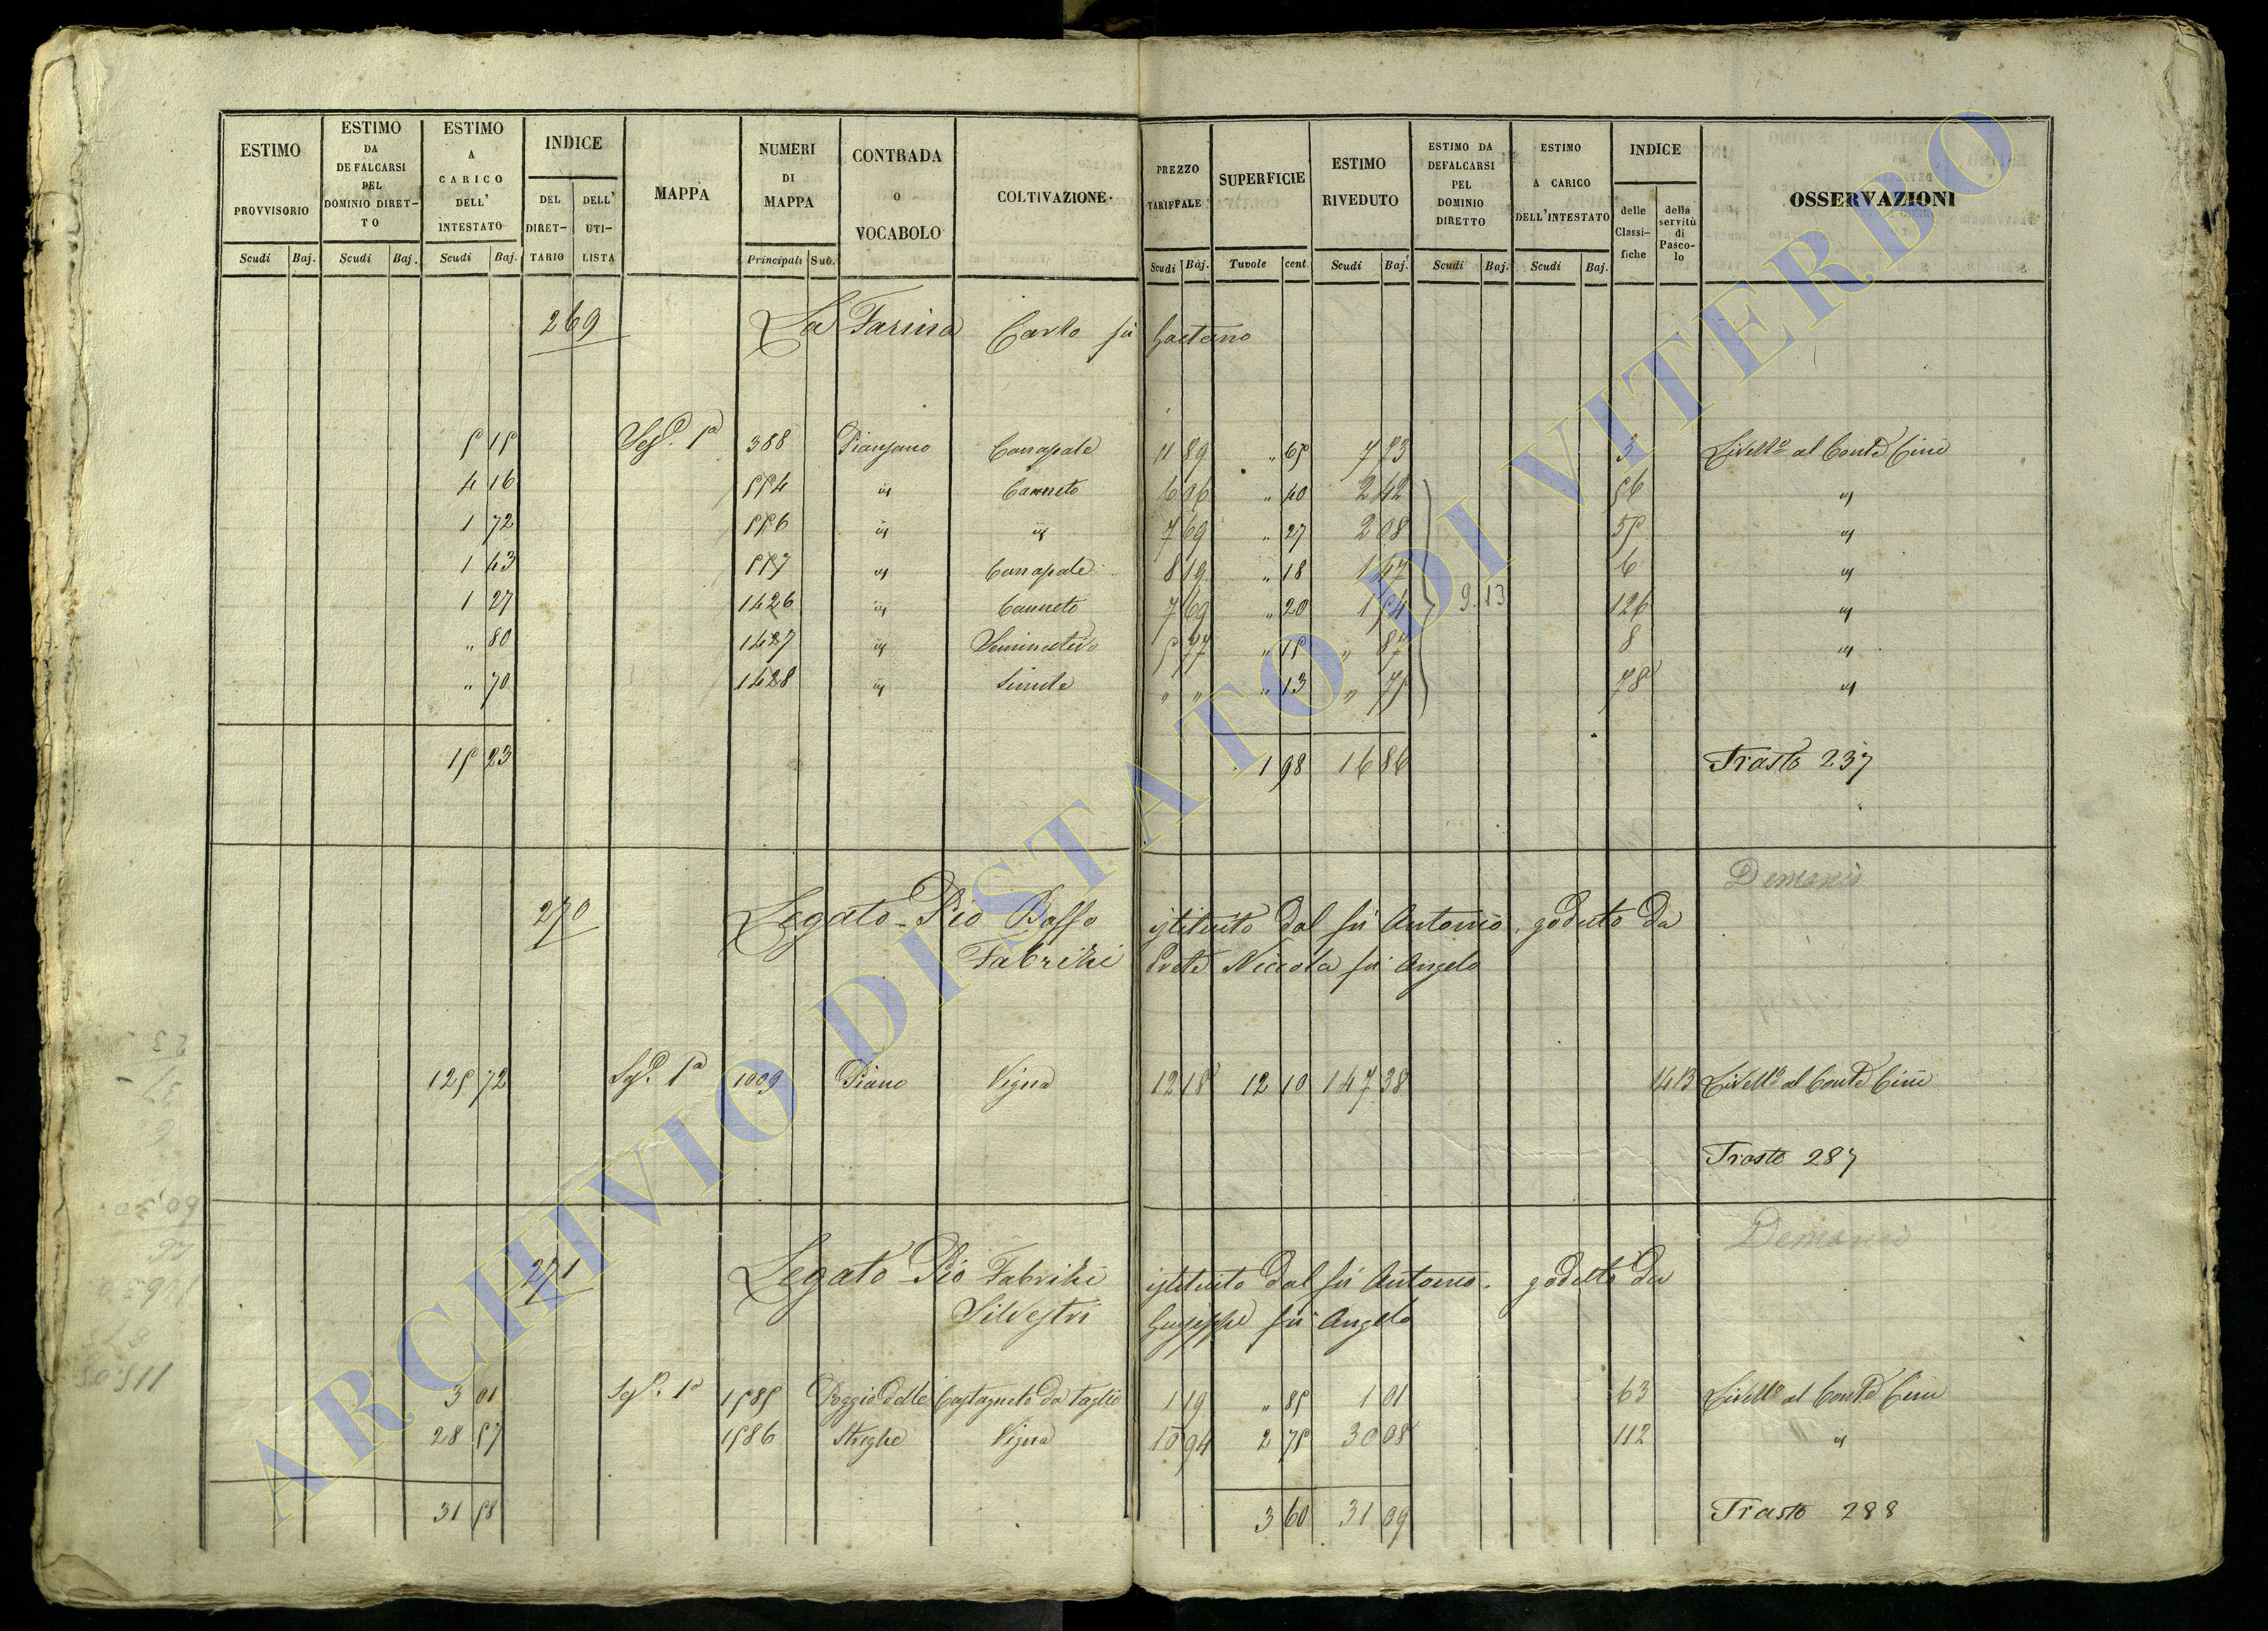 ESTIMO PROVVISORIO Scudi Baj.
ESTIMO DA DEFALCARSI PEL DOMINIO DIRET- TO Scudi Baj.
ESTIMO A CARICO DELL' INTESTATO Scudi Baj.
INDICE DEL DIRET- TARIO DELL' UTI- LISTA
MAPPA
NUMERI DI MAPPA Principali Sub.
CONTRADA O VOCABOLO
COLTIVAZIONE
PREZZO TARIFFALE Scudi Baj.
SUPERFICIE Tavole cent.
ESTIMO RIVEDUTO Scudi Baj.
ESTIMO DA DEFALCARSI PEL DOMINIO DIRETTO Scudi Baj.
ESTIMO A CARICO DELL'INTESTATO Scudi Baj.
INDICE delle Classi- fiche della servitù di Pasco- lo
OSSERVAZIONI
269 La Farina Carlo fu Gaetano
5 15 Sez. 1a 388 Pianzano Canapale 11 89 " 65 7 73 3 Livello al Conte Cini
4 16 554 " Canneto 6 06 " 40 2 42 56 "
1 72 556 " " 7 69 " 27 2 08 55 "
1 43 557 " Canapale 8 19 " 18 1 47 6 "
1 27 1426 " Canneto 7 69 " 20 1 54 9.13 126 "
" 80 1427 " Seminativo 5 77 " 15 " 87 8 "
" 70 1428 " Simile " " " 13 " 75 78 "
15 23 1 98 16 86 Trasto 237
Demanio
270 Legato Pio Baffo istituito dal fu Antonio, goduto da
Fabrizi Prete Niccola fu Angelo
125 72 Sez. 1a 1009 Piano Vigna 12 18 12 10 147 38 1413 Livello al Conte Cini
Trasto 287
Demanio
271 Legato Pio Fabrizi istituito dal fu Antonio. goduto da
Silvestri Giuseppe fu Angelo
3 01 Sez. 1a 1585 Poggio delle Castagneto da taglio 1 19 " 85 1 01 63 Livello al Conte Cini
28 57 1586 Streghe Vigna 10 94 2 75 30 08 112 "
31 58 3 60 31 09 Trasto 288
ARCHIVIO DI STATO DI VITERBO